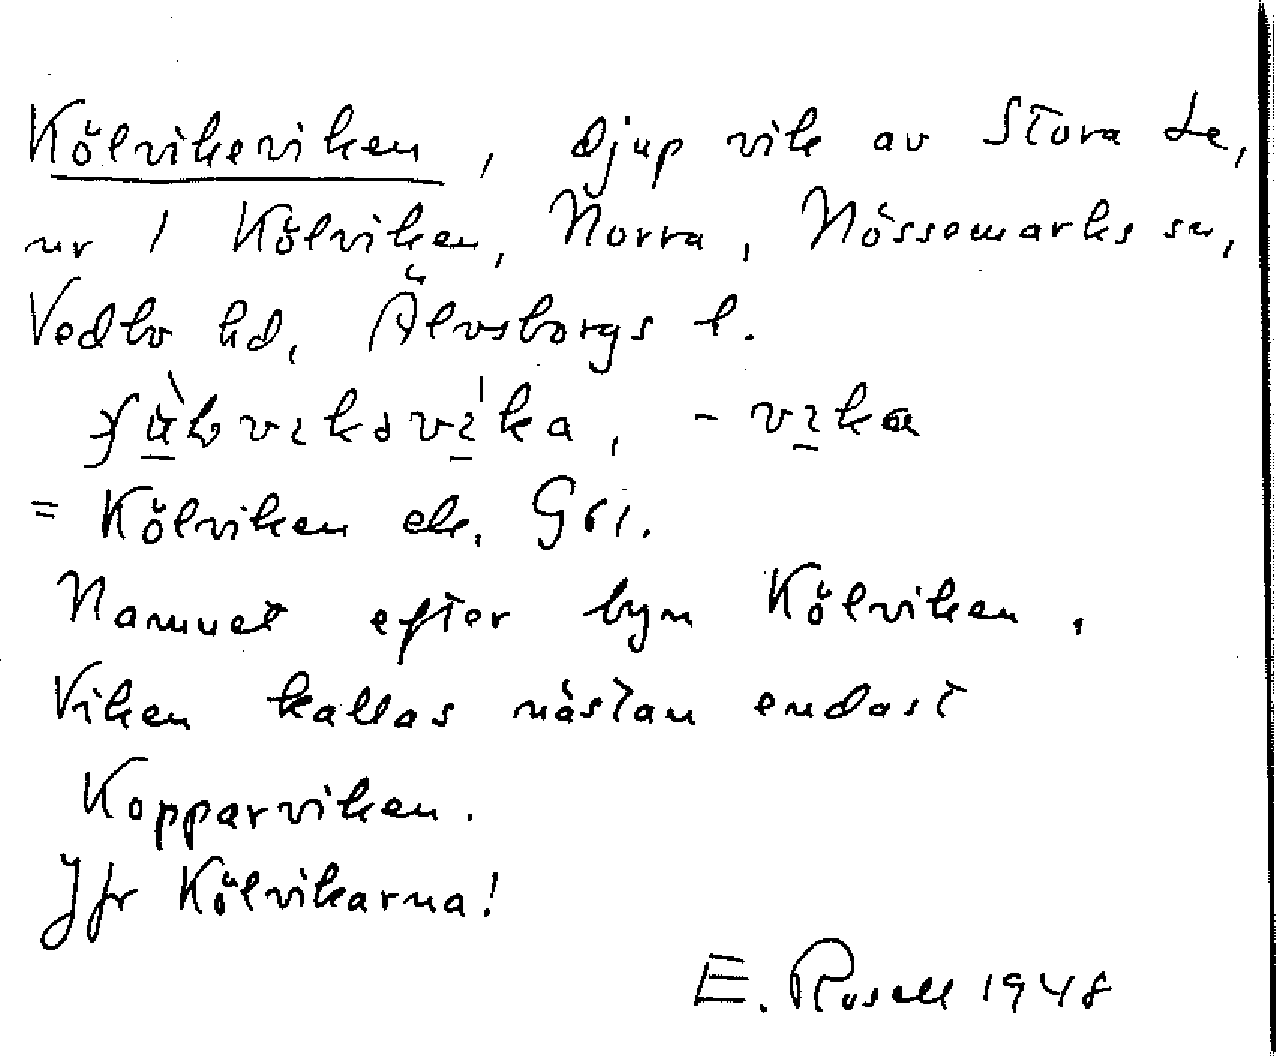 Kölvikeviken, djup vik av Stora Le,
nr 1 Kölviken, Norra, Nössemarks sn,
Vedbo hd, Älvsborgs l.
-vɩka
= Kölviken ek. Gr1.
Namnet efter byn Kölviken.
Viken kallas nästan endast
Kopparviken.
Jfr Kölvikarna!
E. Rosell 1948